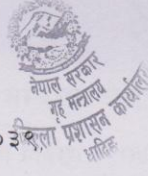 नेपाल सरकार
गृह मन्त्रालय
जिल्ला प्रशासन कार्यालय
धादिङ
०३९